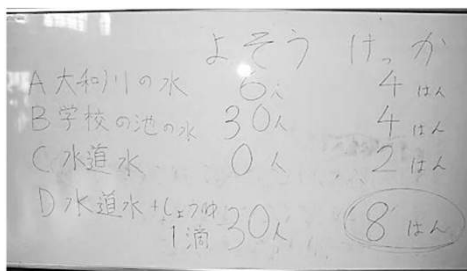 よそう けっか
A 大和川の水 6人 4はん
B 学校の池の水 30人 4はん
C 水道水 0人 2はん
D 水道水+しょうゆ
1滴 30人 8はん